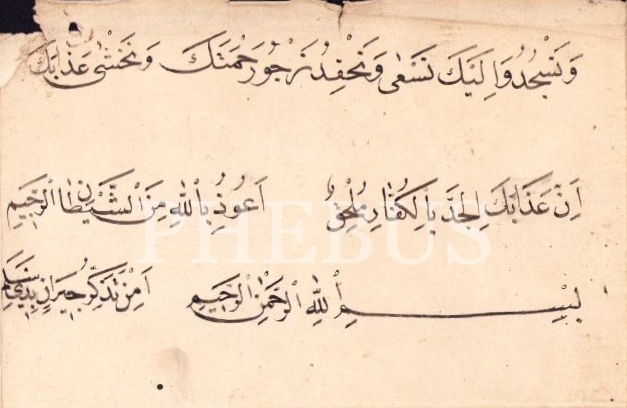 وَنَسْجُدُ وَاِلَيْكَ نَسْعٰى وَنَحْفِدُ نَرْجُو رَحْمَتَكَ وَنَخْشٰى عَذَابَكَ
اِنَّ عَذَابَكَ الْجِدَّ بِالْكُفَّارِ مُلْحِقٌ اَعُوذُ بِاللّٰهِ مِنَ الشَّيْطَانِ الرَّجِيمِ
بِسْمِ اللّٰهِ الرَّحْمٰنِ الرَّحِيمِ اَمِنْ تَذَكُّرِ جِيرَانٍ بِذِي سَلَمِ
PHEBUS